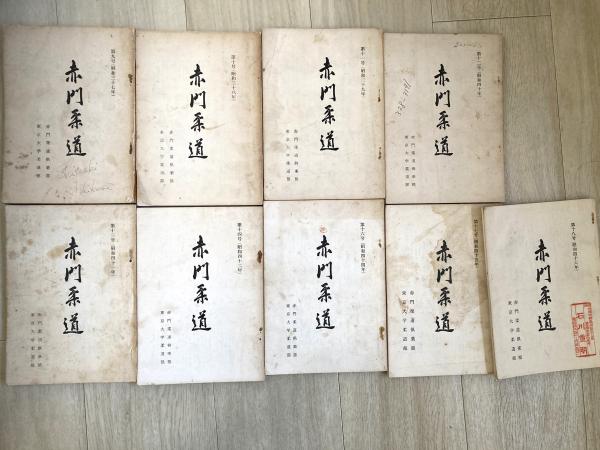 第九号(昭和三十七年)
赤門柔道
赤門柔道倶楽部
東京大学柔道部
第十号(昭和三十八年)
赤門柔道
赤門柔道倶楽部
東京大学柔道部
第十一号(昭和三十九年)
赤門柔道
赤門柔道倶楽部
東京大学柔道部
第十二号(昭和四十年)
赤門柔道
赤門柔道倶楽部
東京大学柔道部
第十三号(昭和四十一年)
赤門柔道
赤門柔道倶楽部
東京大学柔道部
第十四号(昭和四十二年)
赤門柔道
赤門柔道倶楽部
東京大学柔道部
第十六号(昭和四十四年)
赤門柔道
赤門柔道倶楽部
東京大学柔道部
第十七号(昭和四十五年)
赤門柔道
赤門柔道倶楽部
東京大学柔道部
第十八号(昭和四十六年)
赤門柔道
赤門柔道倶楽部
東京大学柔道部